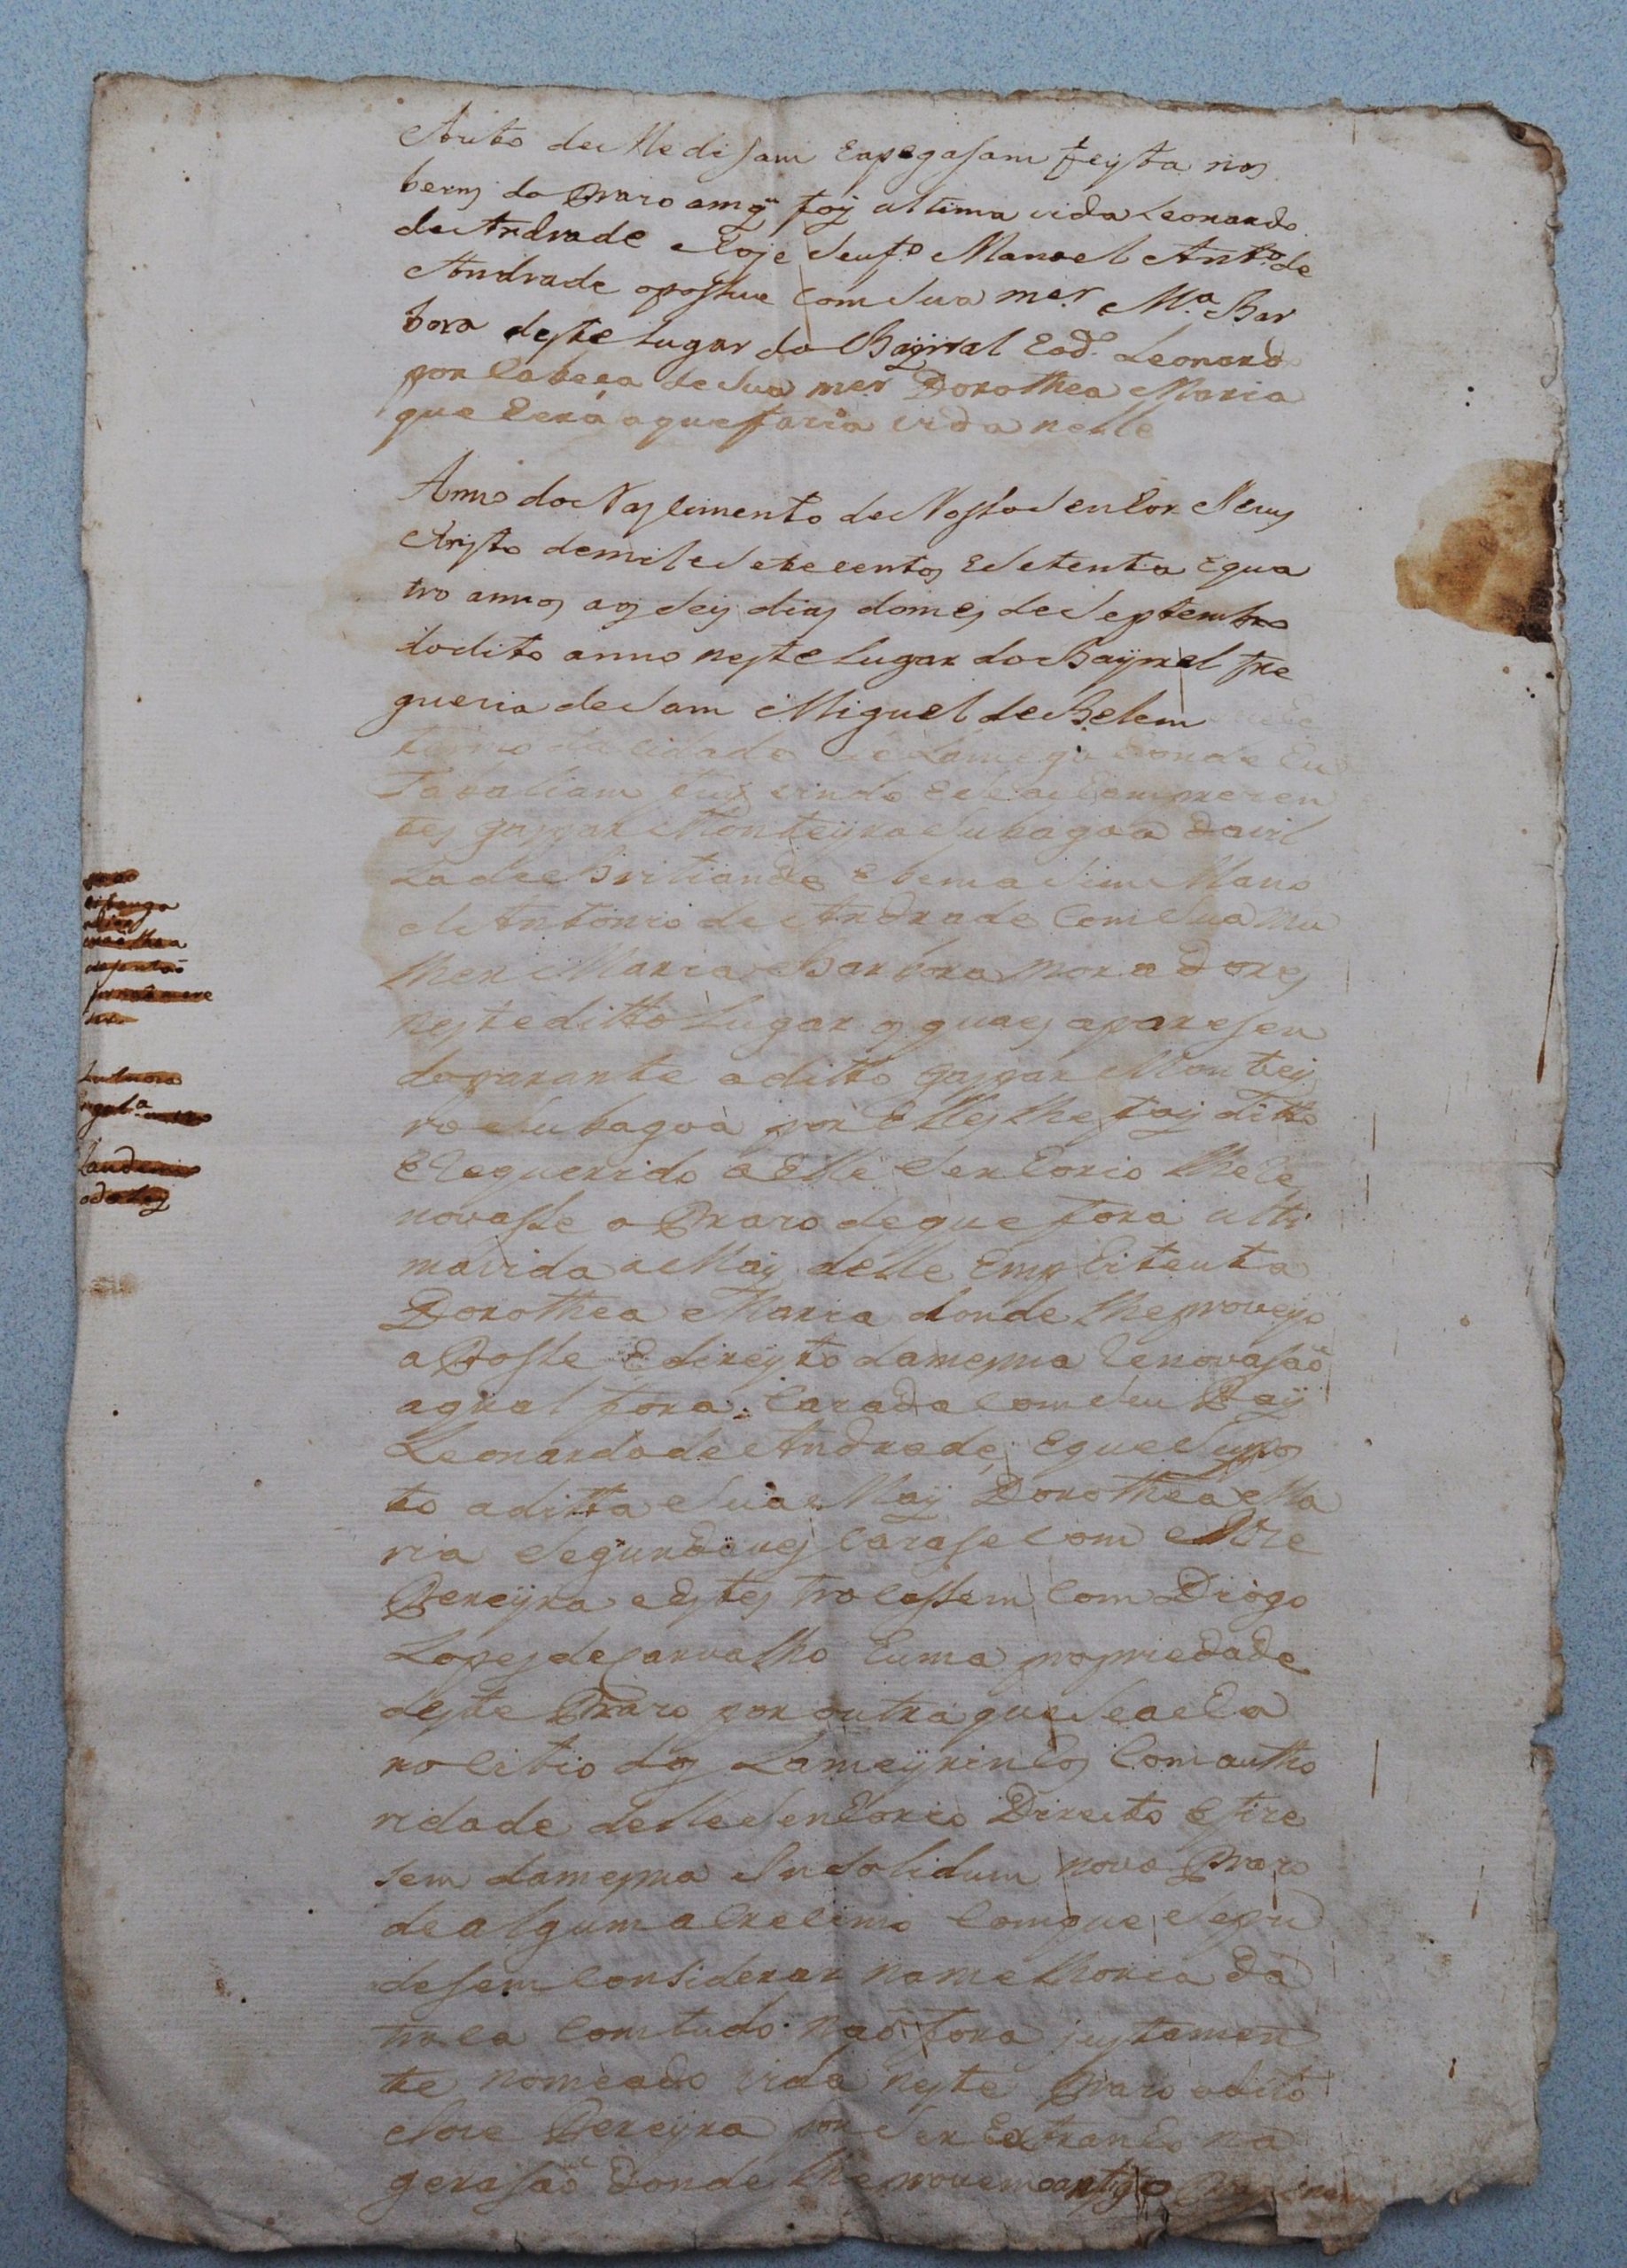 Auto de Medisam Eapegasam feyta nos
bens do Prazo em q̃ foy ultima vida Leonardo
de Andrade e Hoje Seu fº Manoel Antº de
Andrade o possue com Sua mer Mª Bar
bora deste Lugar do Bayrral E o dº Leonardo
por Cabeça de Sua mer Dorothea Maria
que hera a que fazia vida nelle
Anno do Nascimento de Nosso Senhor Jezus
Christo de mil e Sete centos E Setenta E qua
tro annos aos Seis dias do mes de Septembro
do dito anno neste Lugar do Bayrral fre
gueria de Sam Miguel de Belem
termo da cidade de Lamego honde Eu
Tabaliam fuy vindo E sendo
tes Gaspar Monteyro Subagoa da vil
La de Britiande e bem a Sim Mano
el Antonio de Andrade Com Sua mu
lher Maria Barbora moradores
neste ditto Lugar os quaes aparesen
do parante o ditto Gaspar Montey
ro Subagoa por Elles lhe foy ditto
E Requerido a Elle Senhorio lhe Re
novasse o Prazo de que fora ulti
ma vida a May delle Emphiteuta
Dorothea Maria donde lhe proveyo
a Posse E direyto da mesma Renovasaõ
a qual fora Cazada com Seu Pay
Leonardo de Andrade, E que Supos
to a ditta Sua May Dorothea Ma
ria Segunda ves Cazase com Joze
Pereyra e estes trocassem com Diogo
Lopes de Carvalho huma propriedade
deste Prazo por outra que Se acha
no citio dos Lameyrinhos Com autho
ridade deste Senhorio Direito E fize
sem da mesma In Solidum novo Prazo
de algum acrecimo Com que Se pu
desem considerar na melhoria da
troca Com tudo naõ fora justamen
te nomeado vida neste Prazo o dito
Joze Pereyra por Ser Extranho na
gerasaõ donde lhe provem o antigo